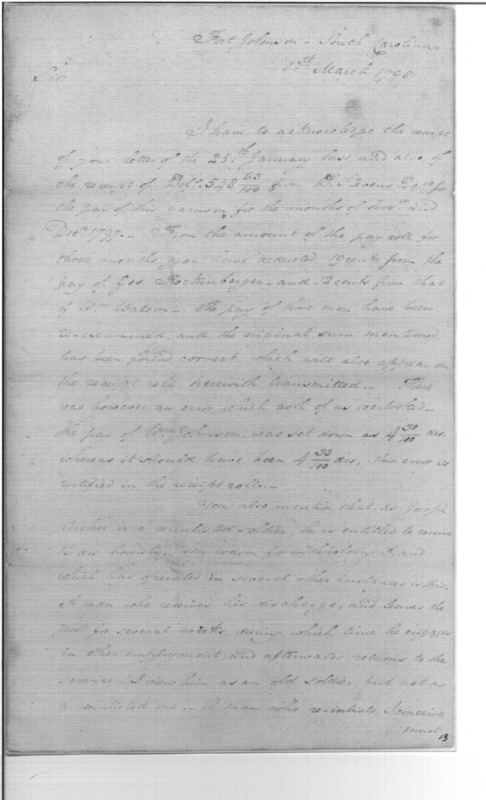 Fort Johnson - South Carolina
1st March 1798
Sir
I have to acknowledge the receipt
of your letter of the 25th January last, and also of
the receipt of Dols. 548 63/100 from D. Stevens for
the pay of this garrison for the months of Novr. and
Decr. 1797. - From the amount of the pay role for
those months, you have deducted 19 cents from the
pay of Geo. Rockenberger and 12 cents from that
of Wm. Watson - The pay of these men have been
re-examined, and the original sum mentioned
has been found correct, which will also appear on
the receipt role herewith transmitted. - There
was however, an error, which both of us overlooked -
The pay of Wm. Johnson, was set down as 4 30/100 drs.
whereas it should have been 4 33/100 drs, this error is
rectified in the receipt role. -
You also mention that, as Joseph
is a reenlisted soldier, he is entitled to receive
drs. bounty. My reason for withholding it, and
which has operated in several other instances is this,
A man who receives his discharge, and leaves the
post for several weeks, during which time he engages
in other employment and afterwards returns to the
service, I view him as an old soldier, but not as
a reenlisted one - A man who re-inlists, I conceive
must
13